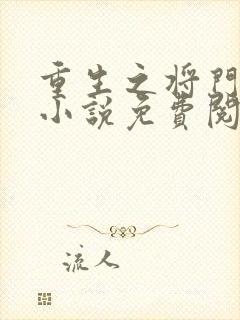 重生之将門
小說免費閱
流人